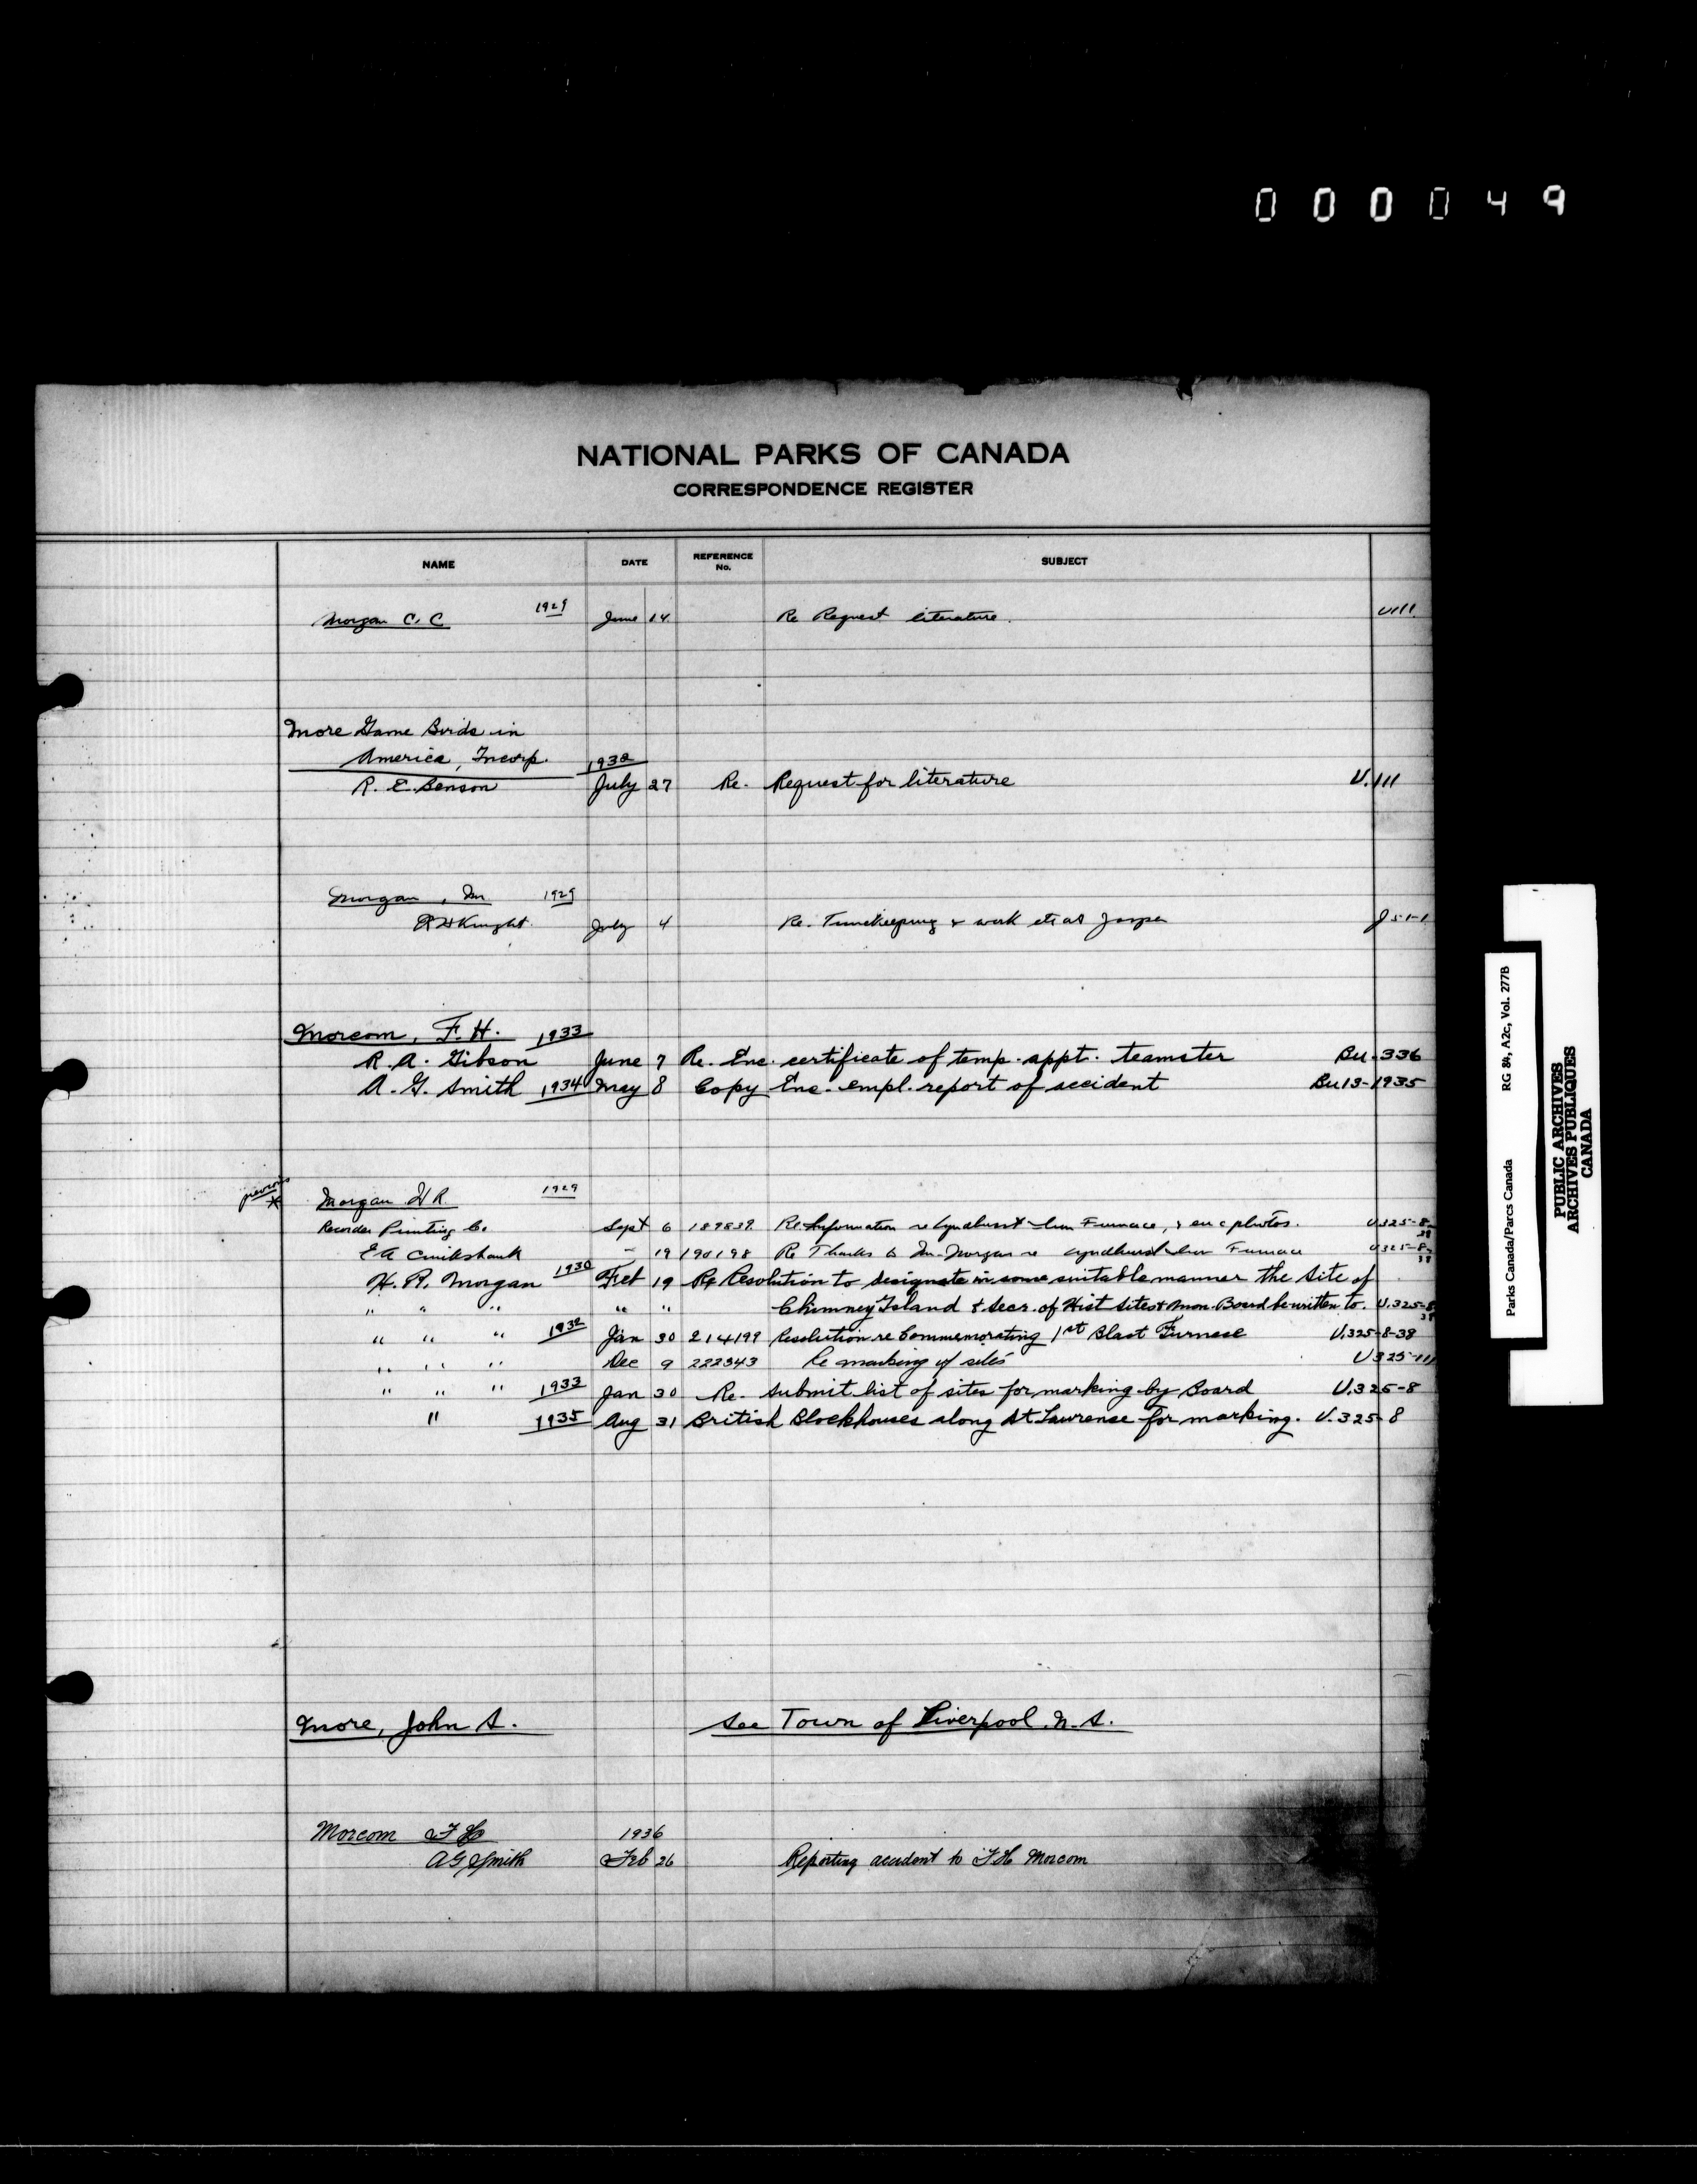 000049
NATIONAL PARKS OF CANADA
CORRESPONDENCE REGISTER
NAME DATE REFERENCE No. SUBJECT
Morgan C. C 1929 June 14 Re Request literature. U111.
More Game Birds in
America, Incorp. 1932
R. E. Benson July 27 Re. Request for literature U.111
Morgan, Mr 1929
R H Knight July 4 Re. Timekeeping & work etc at Jasper J51-1
Morcom, F. H. 1933
R. A. Gibson June 7 Re. Enc. certificate of temp. appt. teamster Bu-336
A. G. Smith 1934 May 8 Copy Enc. empl. report of accident Bu13-1935
previous
* Morgan H R 1929
Recorder Printing Co. Sept 6 189839 Re Information re Lyndhurst Iron Furnace, & enc photos. U325-8-38
E A Cruikshank " 19 190198 Re Thanks to Mr Morgan re Lyndhurst Iron Furnace U325-8-38
H. R. Morgan 1930 Feb 19 Re Resolution to designate in some suitable manner the site of
" " " " " Chimney Island & Secr. of Hist Sites & Mon. Board be written to. U.325-8-38
" " " 1932 Jan 30 214199 Resolution re Commemorating 1st Blast Furnace U.325-8-38
" " " Dec 9 222343 Re marking of sites U325-11
" " " 1933 Jan 30 Re. Submit list of sites for marking by Board U.325-8
" 1935 Aug 31 British Blockhouses along St Lawrence for marking. U.325-8
More, John S. See Town of Liverpool. N. S.
Morcom F H 1936
A G Smith Feb 26 Reporting accident to F H Morcom
Parks Canada/Parcs Canada RG 84, A2c, Vol. 277B
PUBLIC ARCHIVES
ARCHIVES PUBLIQUES
CANADA